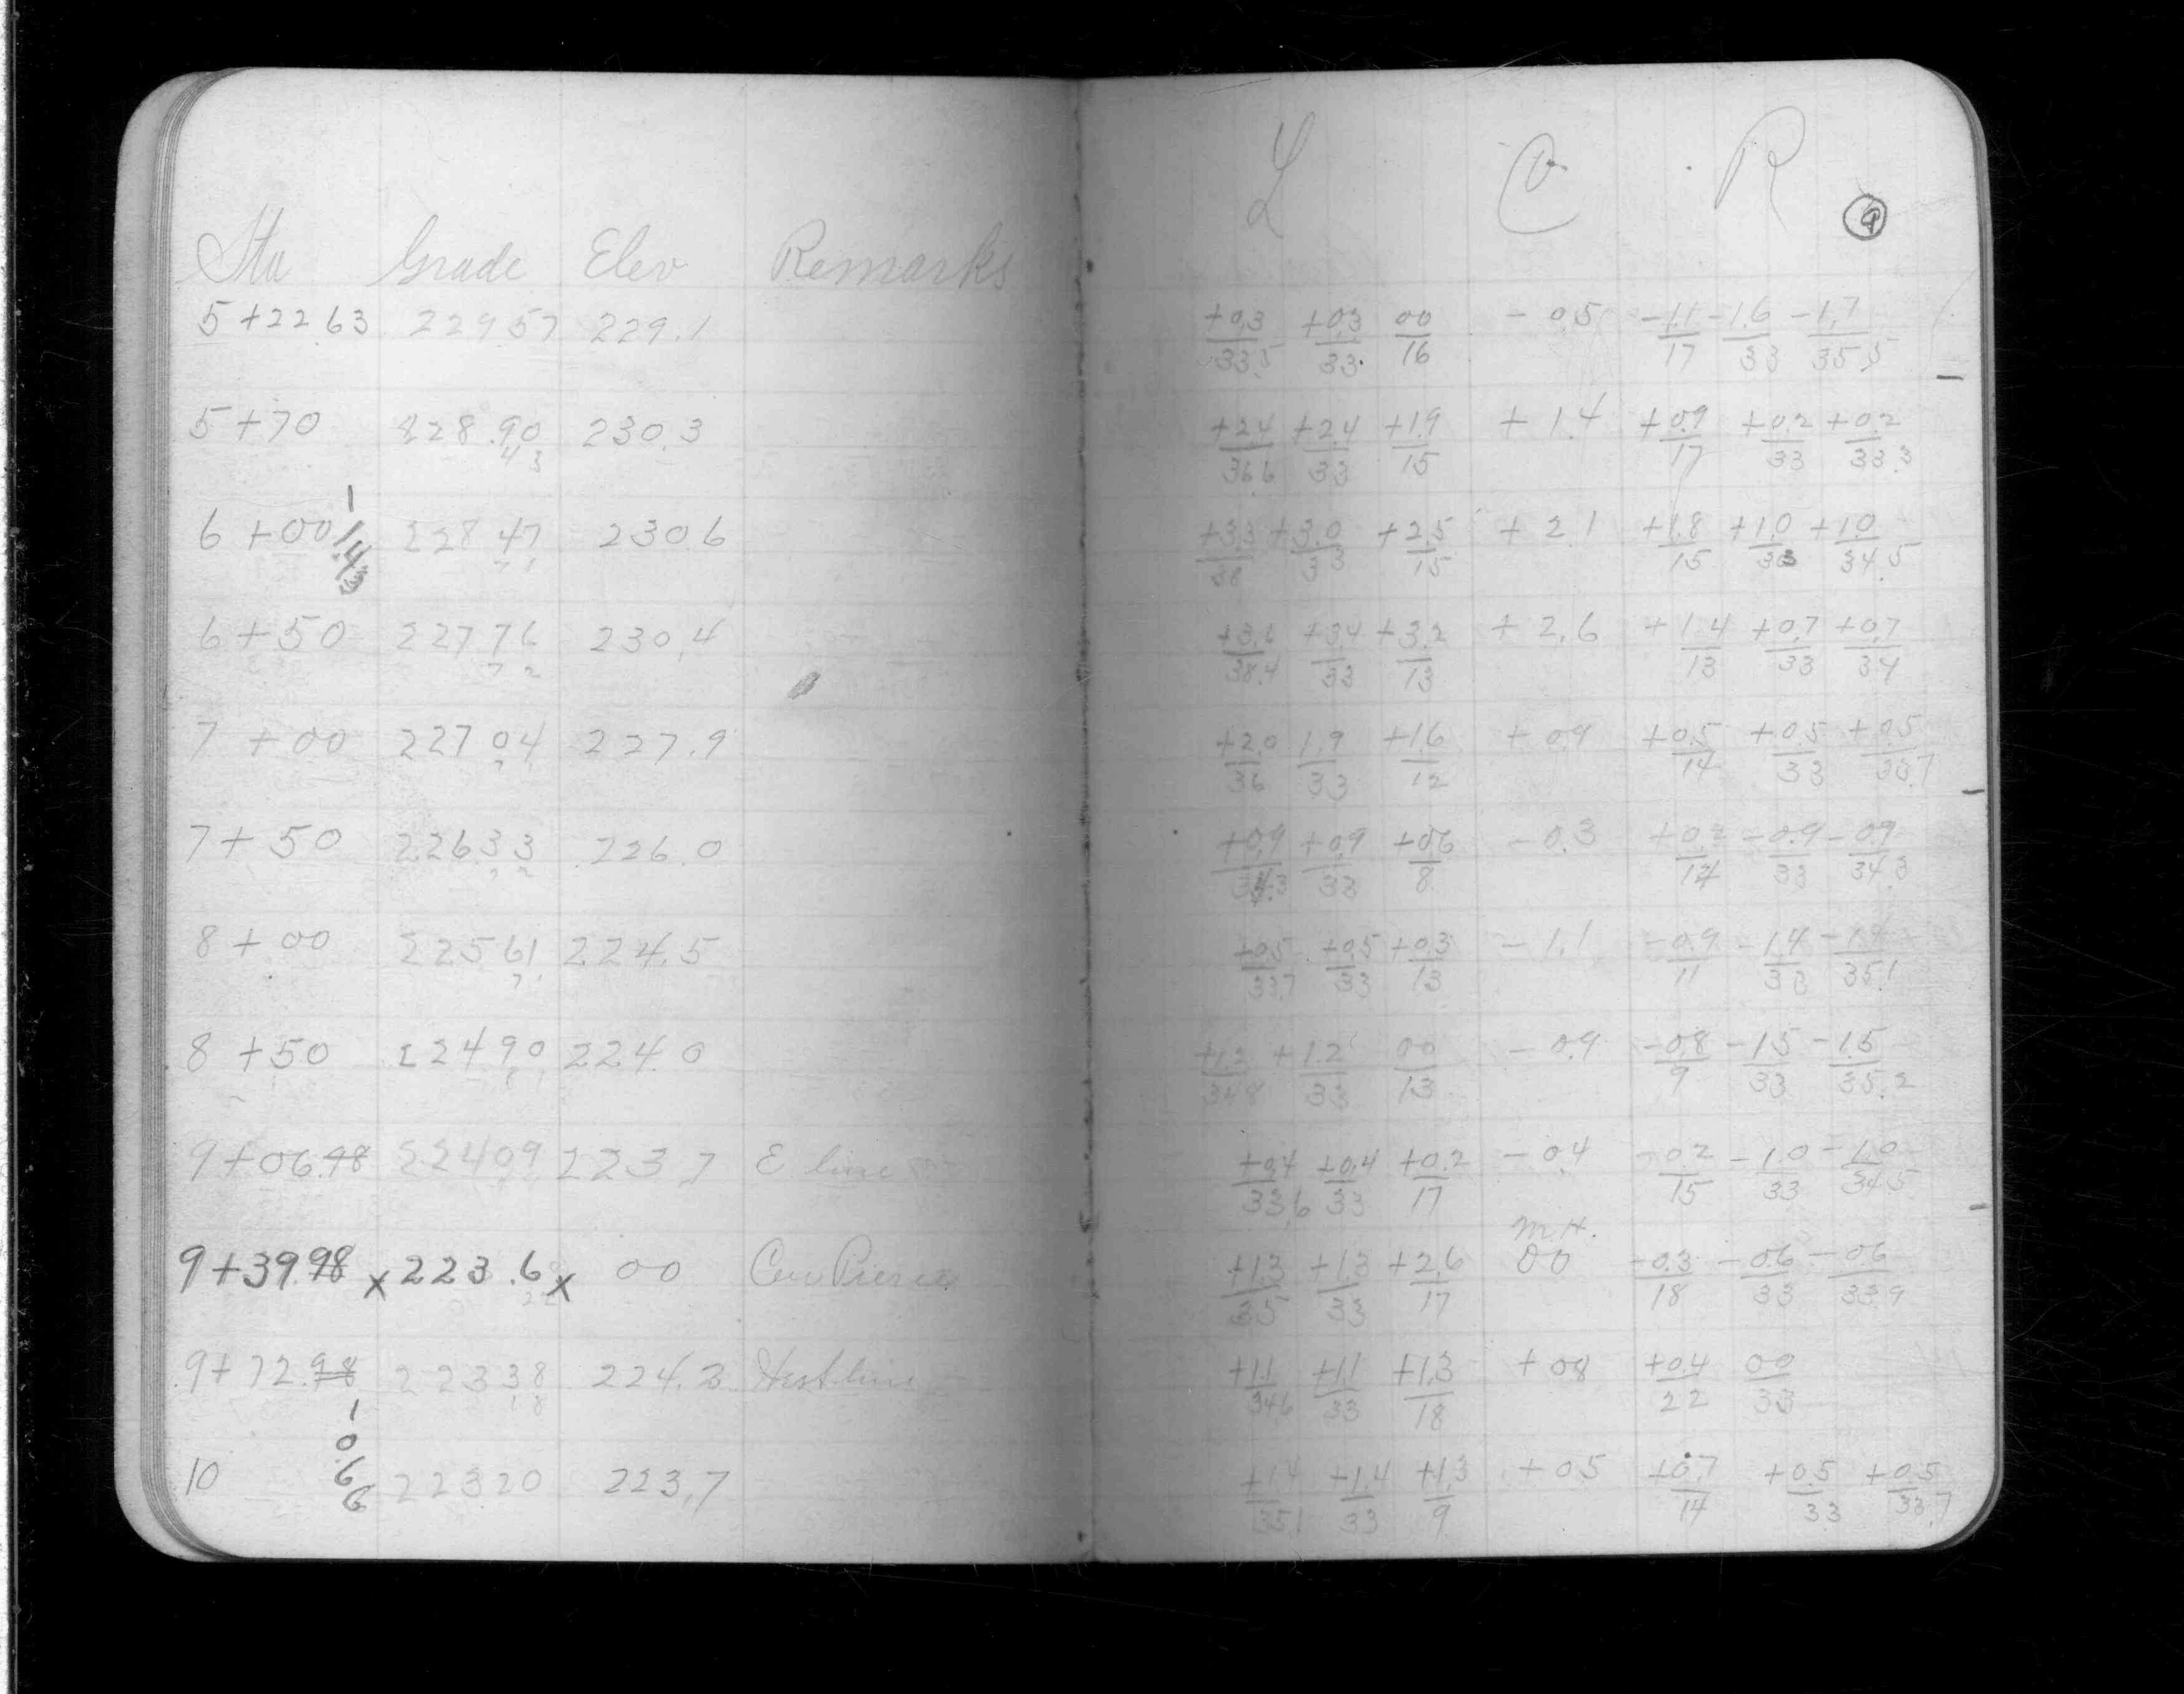 Sta Grade Elev Remarks
5+22 63 229 57 229.1
5+70 228.90 230.3
43
6+00 228 47 230 6
-1.43
71
6+50 227 76 230.4
72
7+00 227 04 227.9
7+50 226 33 226.0
8+00 225 61 224.5
8+50 224 90 224.0
9+06.98 224 09 223.7 E line
9+39.98 x 223.6 x 00 Cen Pierce
9+72.98 223 38 224.2 West line
18
-0.66
10 223 20 223.7
L C R
9
+0.3/33.5 +0.3/33 00/16 -0.5 -1.1/17 -1.6/33 -1.7/35.5
+2.4/36.6 +2.4/33 +1.9/15 +1.4 +0.9/17 +0.2/33 +0.2/33.3
+3.3/38 +3.0/33 +2.5/15 +2.1 +1.8/15 +1.0/33 +1.0/34.5
+3.6/38.4 +3.4/33 +3.2/13 +2.6 +1.4/13 +0.7/33 +0.7/34
+2.0/36 1.9/33 +1.6/12 +0.9 +0.5/14 +0.5/33 +0.5/33.7
+0.9/34.3 +0.9/33 +0.6/8 -0.3 -0.9/33 -0.9/34.3
+0.5/33.7 +0.5/33 +0.3/13 -1.1 -0.9/11 -1.4/33 -1.4/35.1
+1.2/34.8 +1.2/33 00/13 -0.9 -0.8/9 -1.5/33 -1.5/35.2
+0.4/33.6 +0.4/33 +0.2/17 -0.4 -0.2/15 -1.0/33 -1.0/34.5
M.H.
+1.3/35 +1.3/33 +2.6/17 00 -0.3/18 -0.6/33 -0.6/33.9
+1.1/34.6 +1.1/33 +1.3/18 +0.8 +0.4/22 00/33
+1.4/35.1 +1.4/33 +1.3/9 +0.5 +0.7/14 +0.5/33 +0.5/33.7